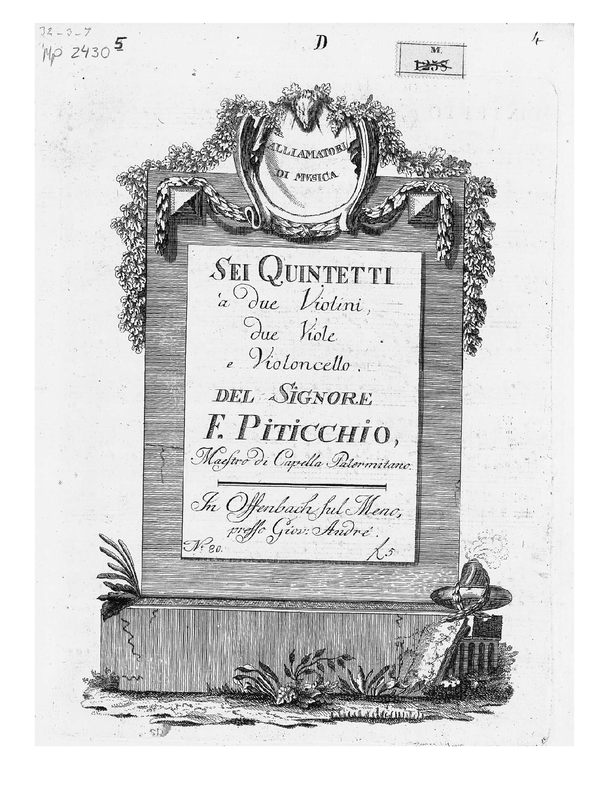 32-3-7
Mp 2430
5
D
4
M.
1258
ALLI AMATORI
DI MVSICA
SEI QUINTETTI
'a due Violini,
due Viole
e Violoncello.
DEL SIGNORE
F. PITICCHIO,
Maeſtro di Capella Palermitano.
In Offenbach ſul Meno,
preſſo Giov: André.
Nº 80.
f. 5